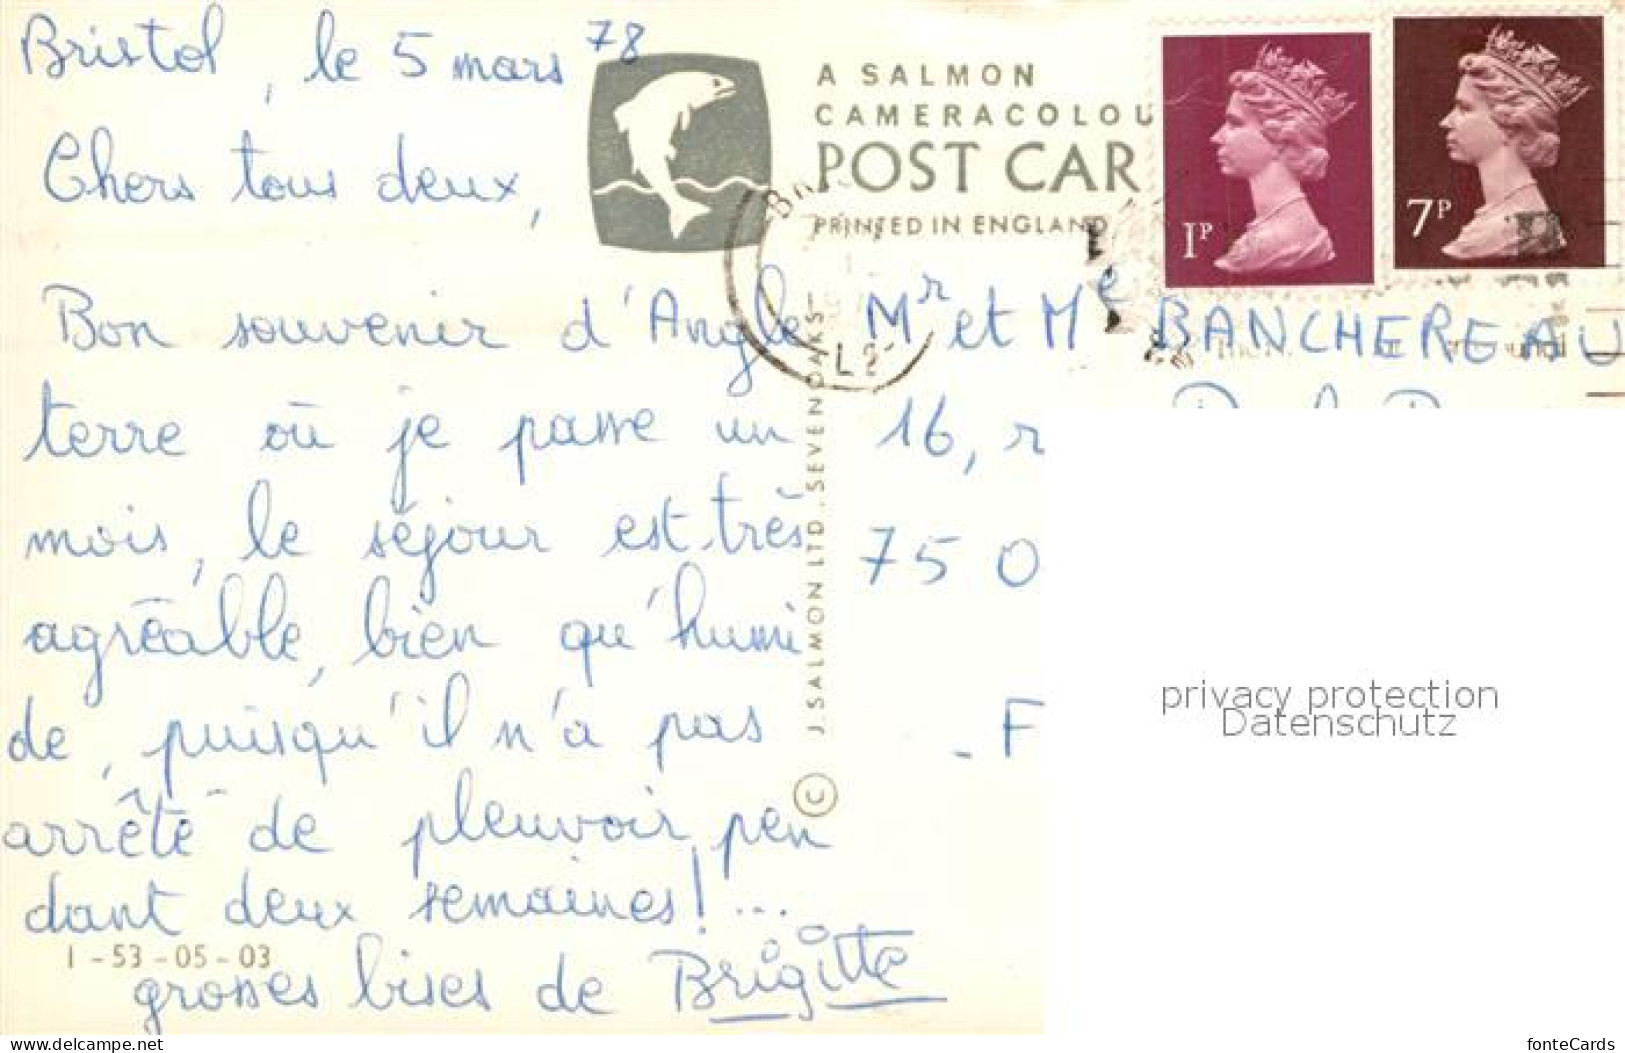 Bristol, le 5 mars 78
Chers tous deux,
Bon souvenir d'Angle
terre où je passe un
mois, le séjour est très
agréable, bien qu'humi
de, puisqu'il n'a pas
arrêté de pleuvoir pen
dant deux semaines!...
grosses bises de Brigitte
1-53-05-03
A SALMON
CAMERACOLOU
POST CAR
PRINTED IN ENGLAND
© J. SALMON LTD. SEVENOAKS
1P
7P
Mr et Me BANCHEREAU
16, r
75 0
- F
privacy protection
Datenschutz
www.delcampe.net
fonteCards